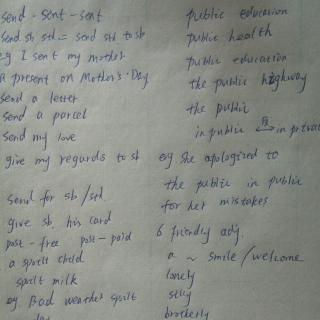 send - sent - sent
send sb sth = send sth to sb
eg I sent my mother
a present on Mother's Day
send a letter
send a parcel
send my love
give my regards to sb
send for sb / sth
give sb. his card
post - free post - paid
a spoilt child
spilt milk
eg. Bad weather spoilt
public education
public health
public education
the public highway
the public
in public in private
eg She apologised to
the public in public
for her mistakes
6 friendly adj.
a ~ smile / welcome
lonely
silly
brotherly